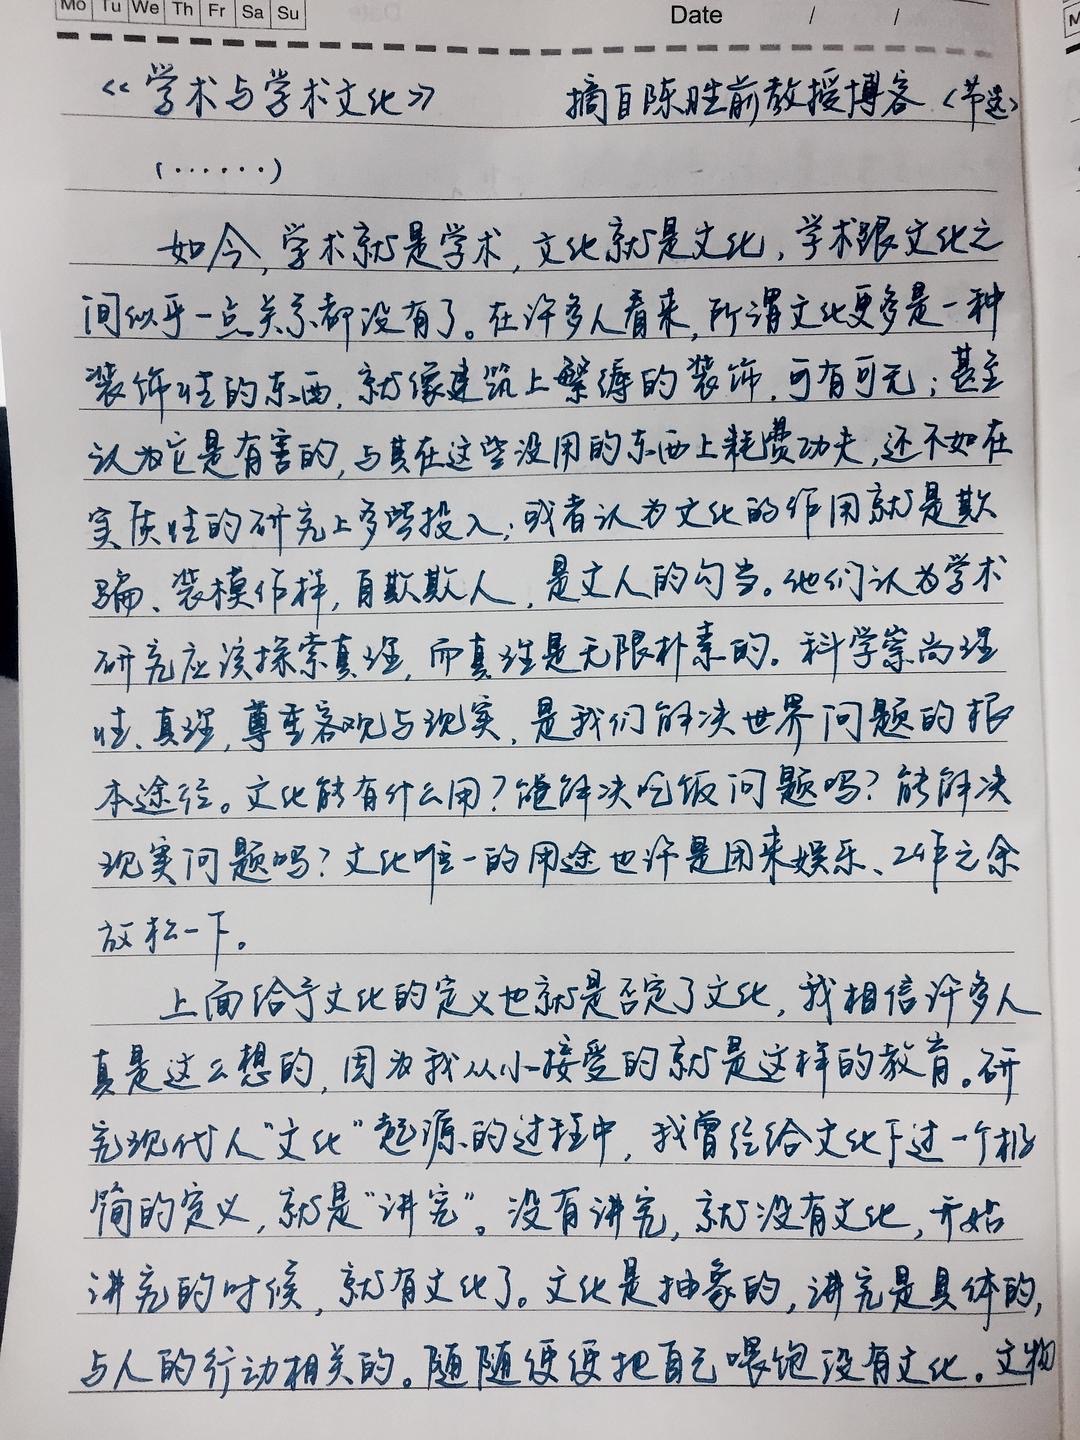 Mo Tu We Th Fr Sa Su
Date / /
《学术与学术文化》 摘自陈胜前教授博客〈节选〉
(······)
如今,学术就是学术,文化就是文化,学术跟文化之
间似乎一点关系都没有了。在许多人看来,所谓文化更多是一种
装饰性的东西,就像建筑上繁缛的装饰,可有可无;甚至
认为它是有害的,与其在这些没用的东西上耗费功夫,还不如在
实质性的研究上多些投入;或者认为文化的作用就是欺
骗、装模作样,自欺欺人,是文人的勾当。他们认为学术
研究应该探索真理,而真理是无限朴素的。科学崇尚理
性、真理,尊重客观与现实,是我们解决世界问题的根
本途径。文化能有什么用?能解决吃饭问题吗?能解决
现实问题吗?文化唯一的用途也许是用来娱乐、工作之余
放松一下。
上面给予文化的定义也就是否定了文化,我相信许多人
真是这么想的,因为我从小接受的就是这样的教育。研
究现代人“文化”起源的过程中,我曾经给文化下过一个极
简的定义,就是“讲究”。没有讲究,就没有文化,开始
讲究的时候,就有文化了。文化是抽象的,讲究是具体的,
与人的行动相关的。随随便便把自己喂饱没有文化。文物